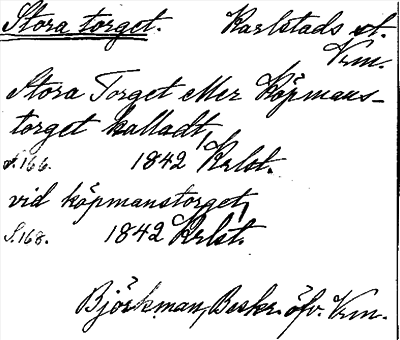 Stora torget. Karlstads st.
Vrm.
Stora Torget eller Köpmans-
torget kalladt,
S. 166. 1842 Krlst.
vid köpmanstorget,
S. 168. 1842 Krlst.
Björkman, Beskr. öfv. Vrm.